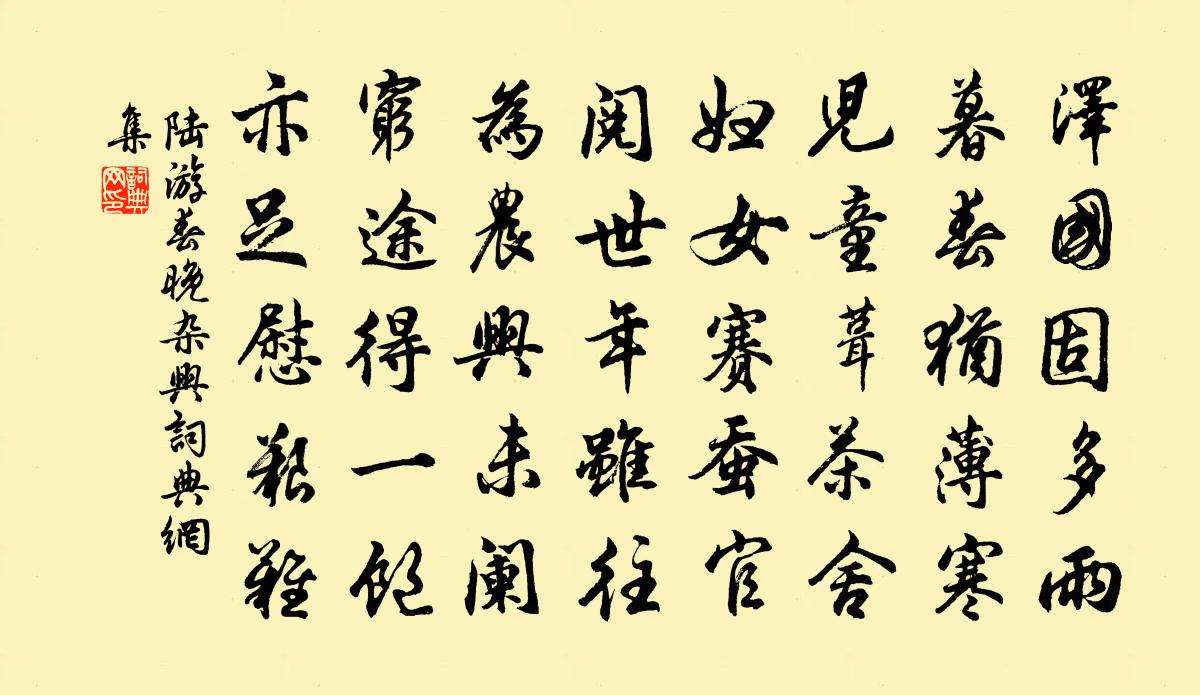 澤國固多雨
暮春猶薄寒
兒童葺茶舍
妇女賽蚕官
閱世年雖往
為農興未阑
窮途得一飽
亦足慰艱難
陆游春晚杂興詞典網
集
詞典
网印